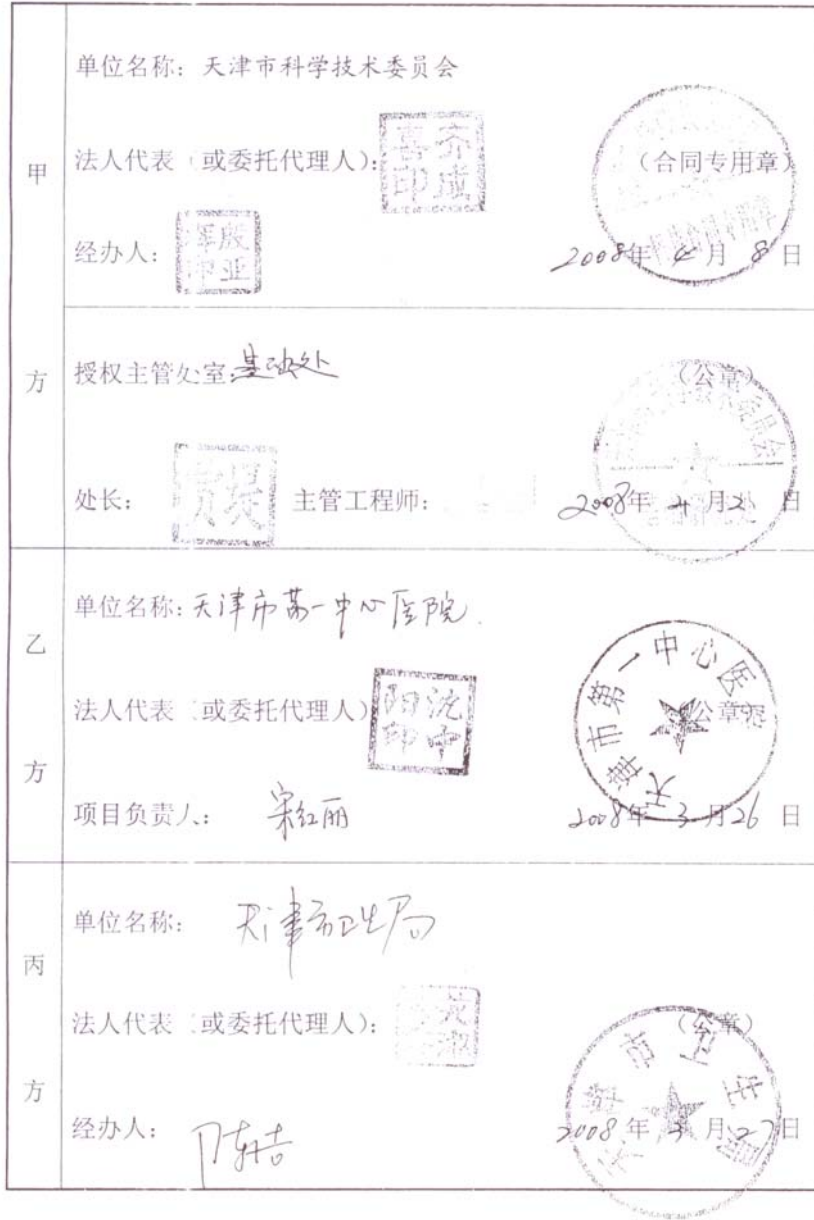 甲方
单位名称：天津市科学技术委员会
法人代表（或委托代理人）：齐成喜印
（合同专用章）
经办人：殷亚晖印
2008年 4月 8日
授权主管处室：基础处
（公章）
处长：
主管工程师：
2008年 4月2 日
乙方
单位名称：天津市第一中心医院
法人代表（或委托代理人） 沈中阳印
天津市第一中心医院
公章
项目负责人：宋红丽
2008年 3月26日
丙方
单位名称：天津市卫生局
法人代表（或委托代理人）：
（公章）
天津市卫生局
经办人：
2008年 3月27日